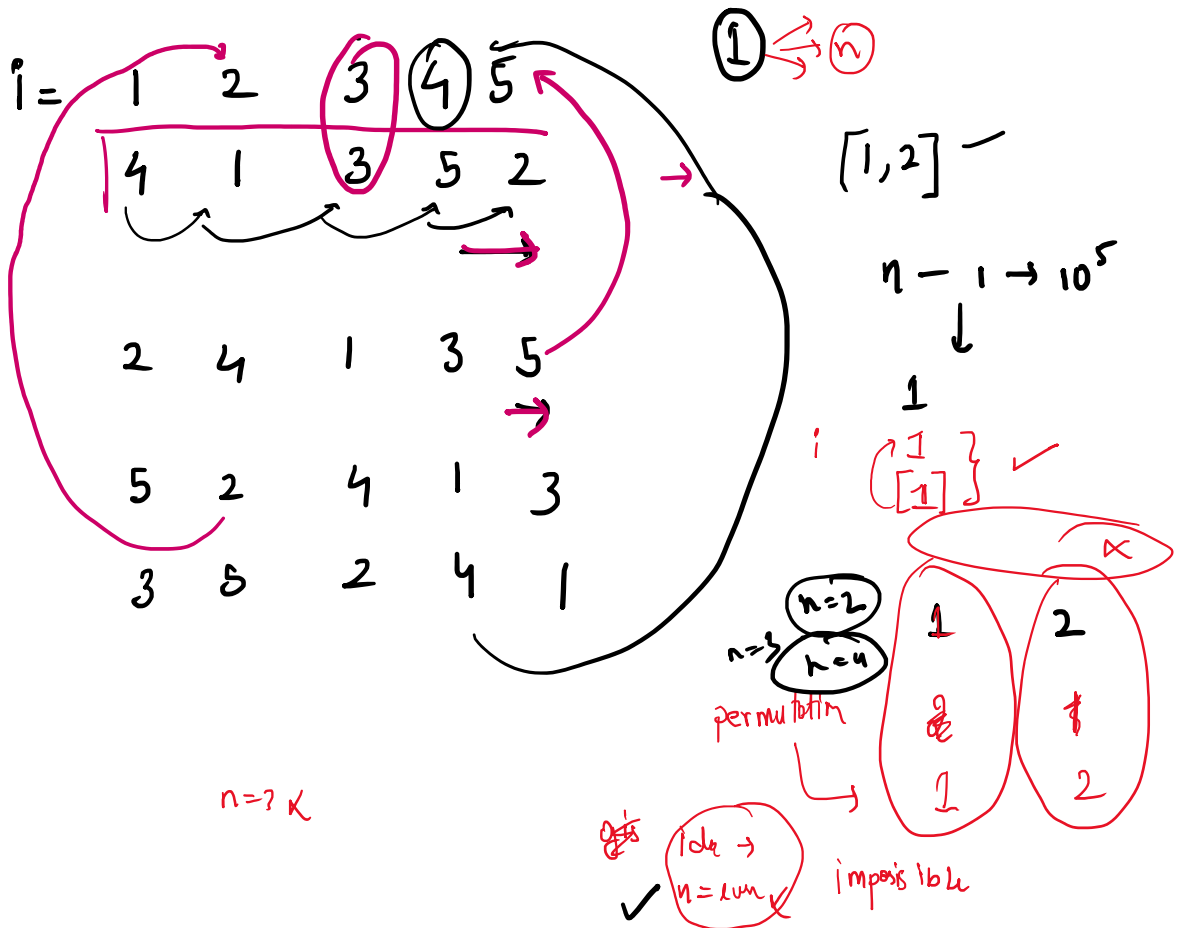 i = 1 2 3 4 5
4 1 3 5 2
2 4 1 3 5
5 2 4 1 3
3 5 2 4 1
n=3 ×
1 n
[1,2]
n - 1 → 10^5
1
i 1
[1]
×
n=2 1 2
n=3 n=4
permutatim
1 2
idx →
n=even
imposisible